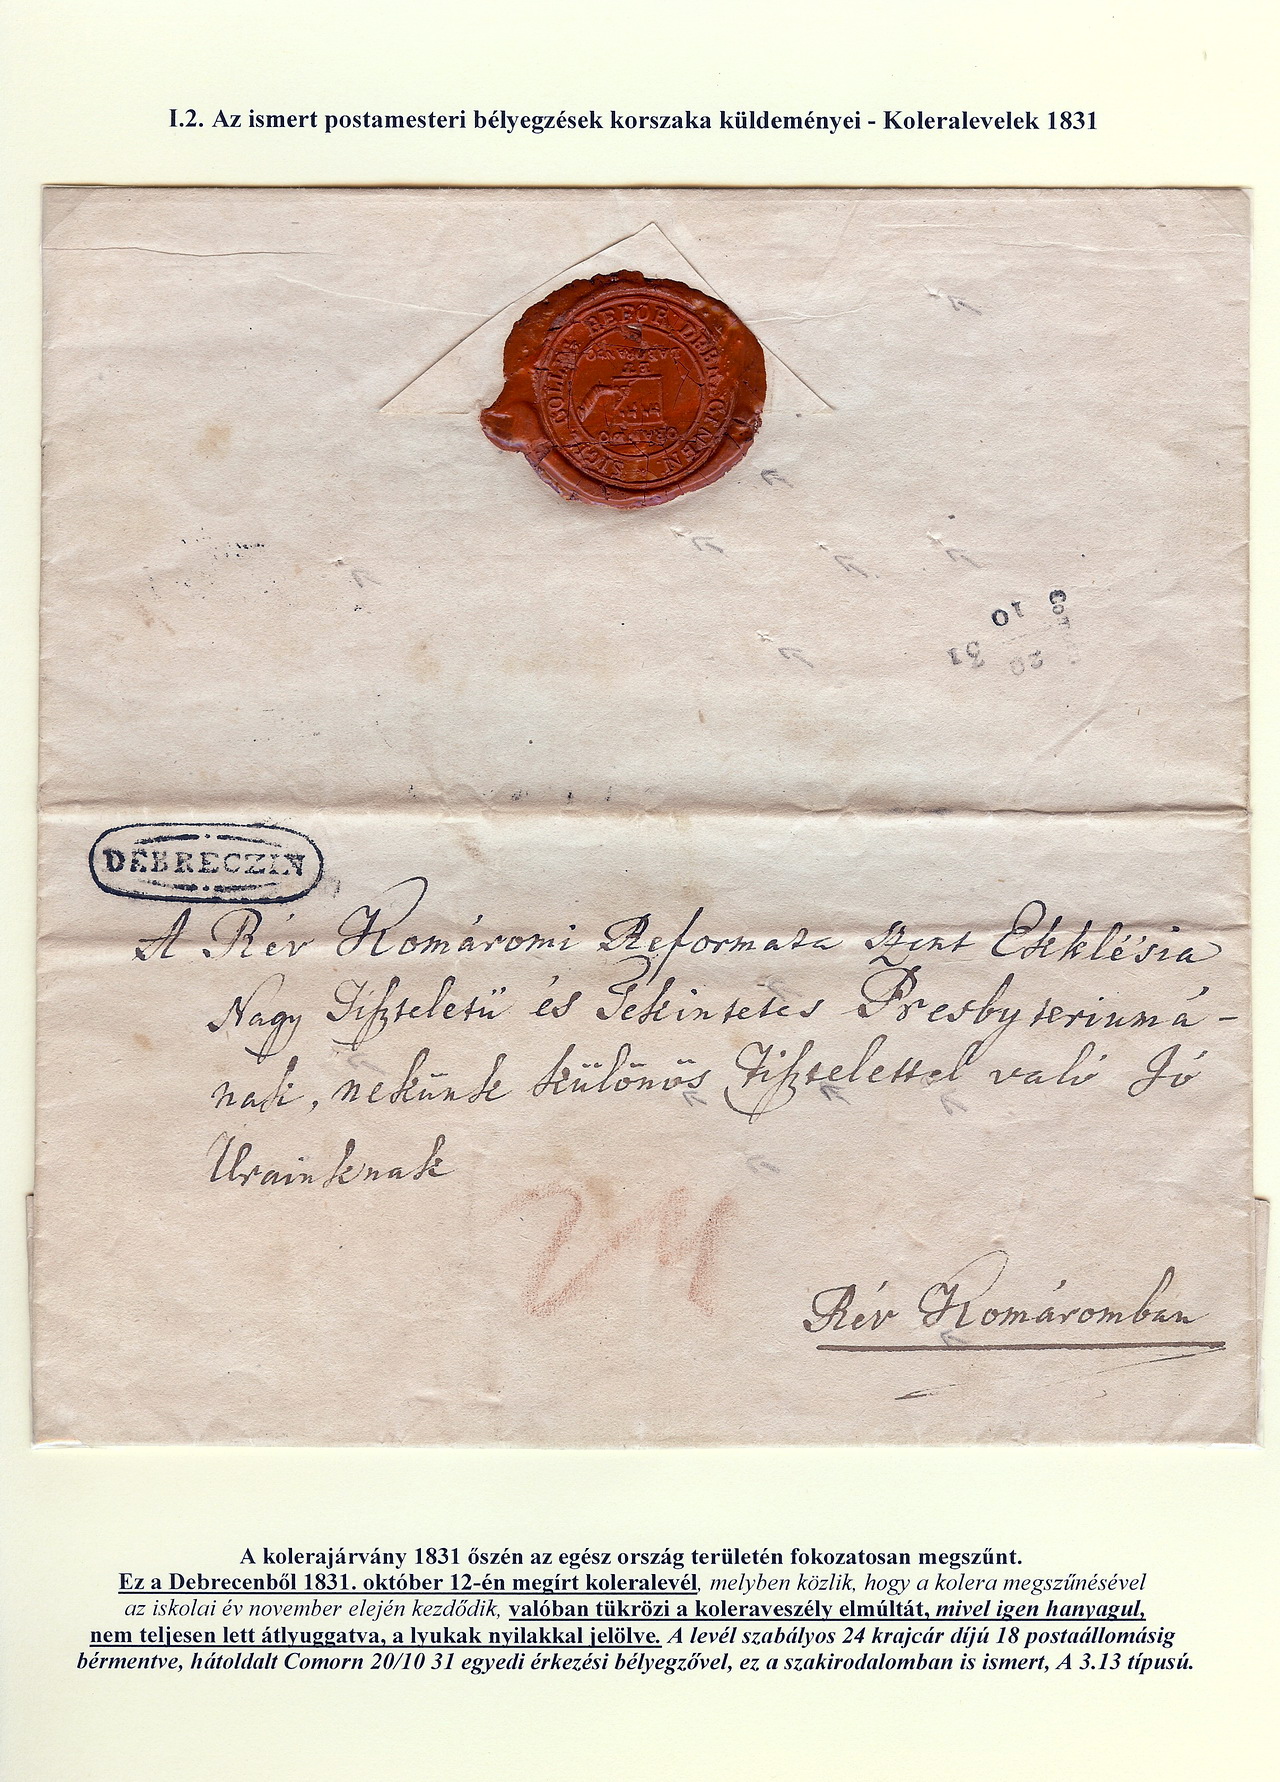 I.2. Az ismert postamesteri bélyegzések korszaka küldeményei - Koleralevelek 1831
SIGI COLLEG REFOR DEBRECINEN
ORANDO
ET
LABORANDO
Com
20
10
31
DEBRECZIN
A Rév Komáromi Reformata Szent Ekklésia
Nagy Tiszteletü és Tekintetes Presbyteriumá-
nak, nekünk különös Tisztelettel való Jó
Urainknak
24
Rév Komáromban
A kolerajárvány 1831 őszén az egész ország területén fokozatosan megszűnt.
Ez a Debrecenből 1831. október 12-én megírt koleralevél, melyben közlik, hogy a kolera megszűnésével
az iskolai év november elején kezdődik, valóban tükrözi a koleraveszély elmúltát, mivel igen hanyagul,
nem teljesen lett átlyuggatva, a lyukak nyilakkal jelölve. A levél szabályos 24 krajcár díjú 18 postaállomásig
bérmentve, hátoldalt Comorn 20/10 31 egyedi érkezési bélyegzővel, ez a szakirodalomban is ismert, A 3.13 típusú.